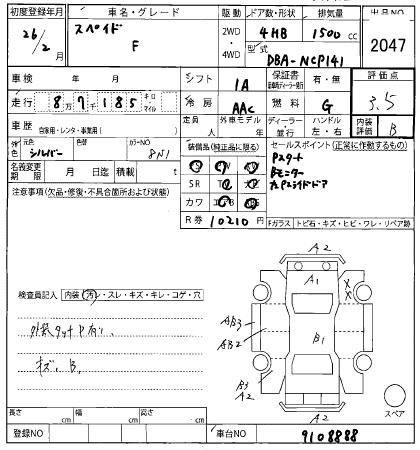 初度登録年月 車名・グレード 駆動 ドア数・形状 排気量 出品NO
26/2月 スペイド F 2WD・4WD 4HB 1500cc 2047
型式 DBA-NCP141
車検 年 月 シフト IA 保証書 有・無 評価点
走行 8万7千185 キロ・マイル 冷房 AAC 燃料 G 3.5
車歴 自家用・レンタ・事業用( ) 定員 人 外車モデル 年 ディーラー 並行 ハンドル 左・右 内装評価 B
外色 元色 シルバー 色替 カラーNO 8N1 装備品(純正品に限る) セールスポイント(正常に作動するもの)
名義変更期限 月 日迄 積載 t Pスタート
SR Bモニター
注意事項(欠品・修復・不具合箇所および状態) カワ 左Pスライドドア
R券 10210円 Fガラス トビ石・キズ・ヒビ・ワレ・リペア跡
A2
A1
XX
検査員記入 内装(汚レ・スレ・キズ・キレ・コゲ・穴
AB3
外装タッチP有り、 AB2 B1
キズ、B、 B3
A2
A2
スペア
長さ cm 幅 cm 高さ cm
登録NO 車台NO 9108888